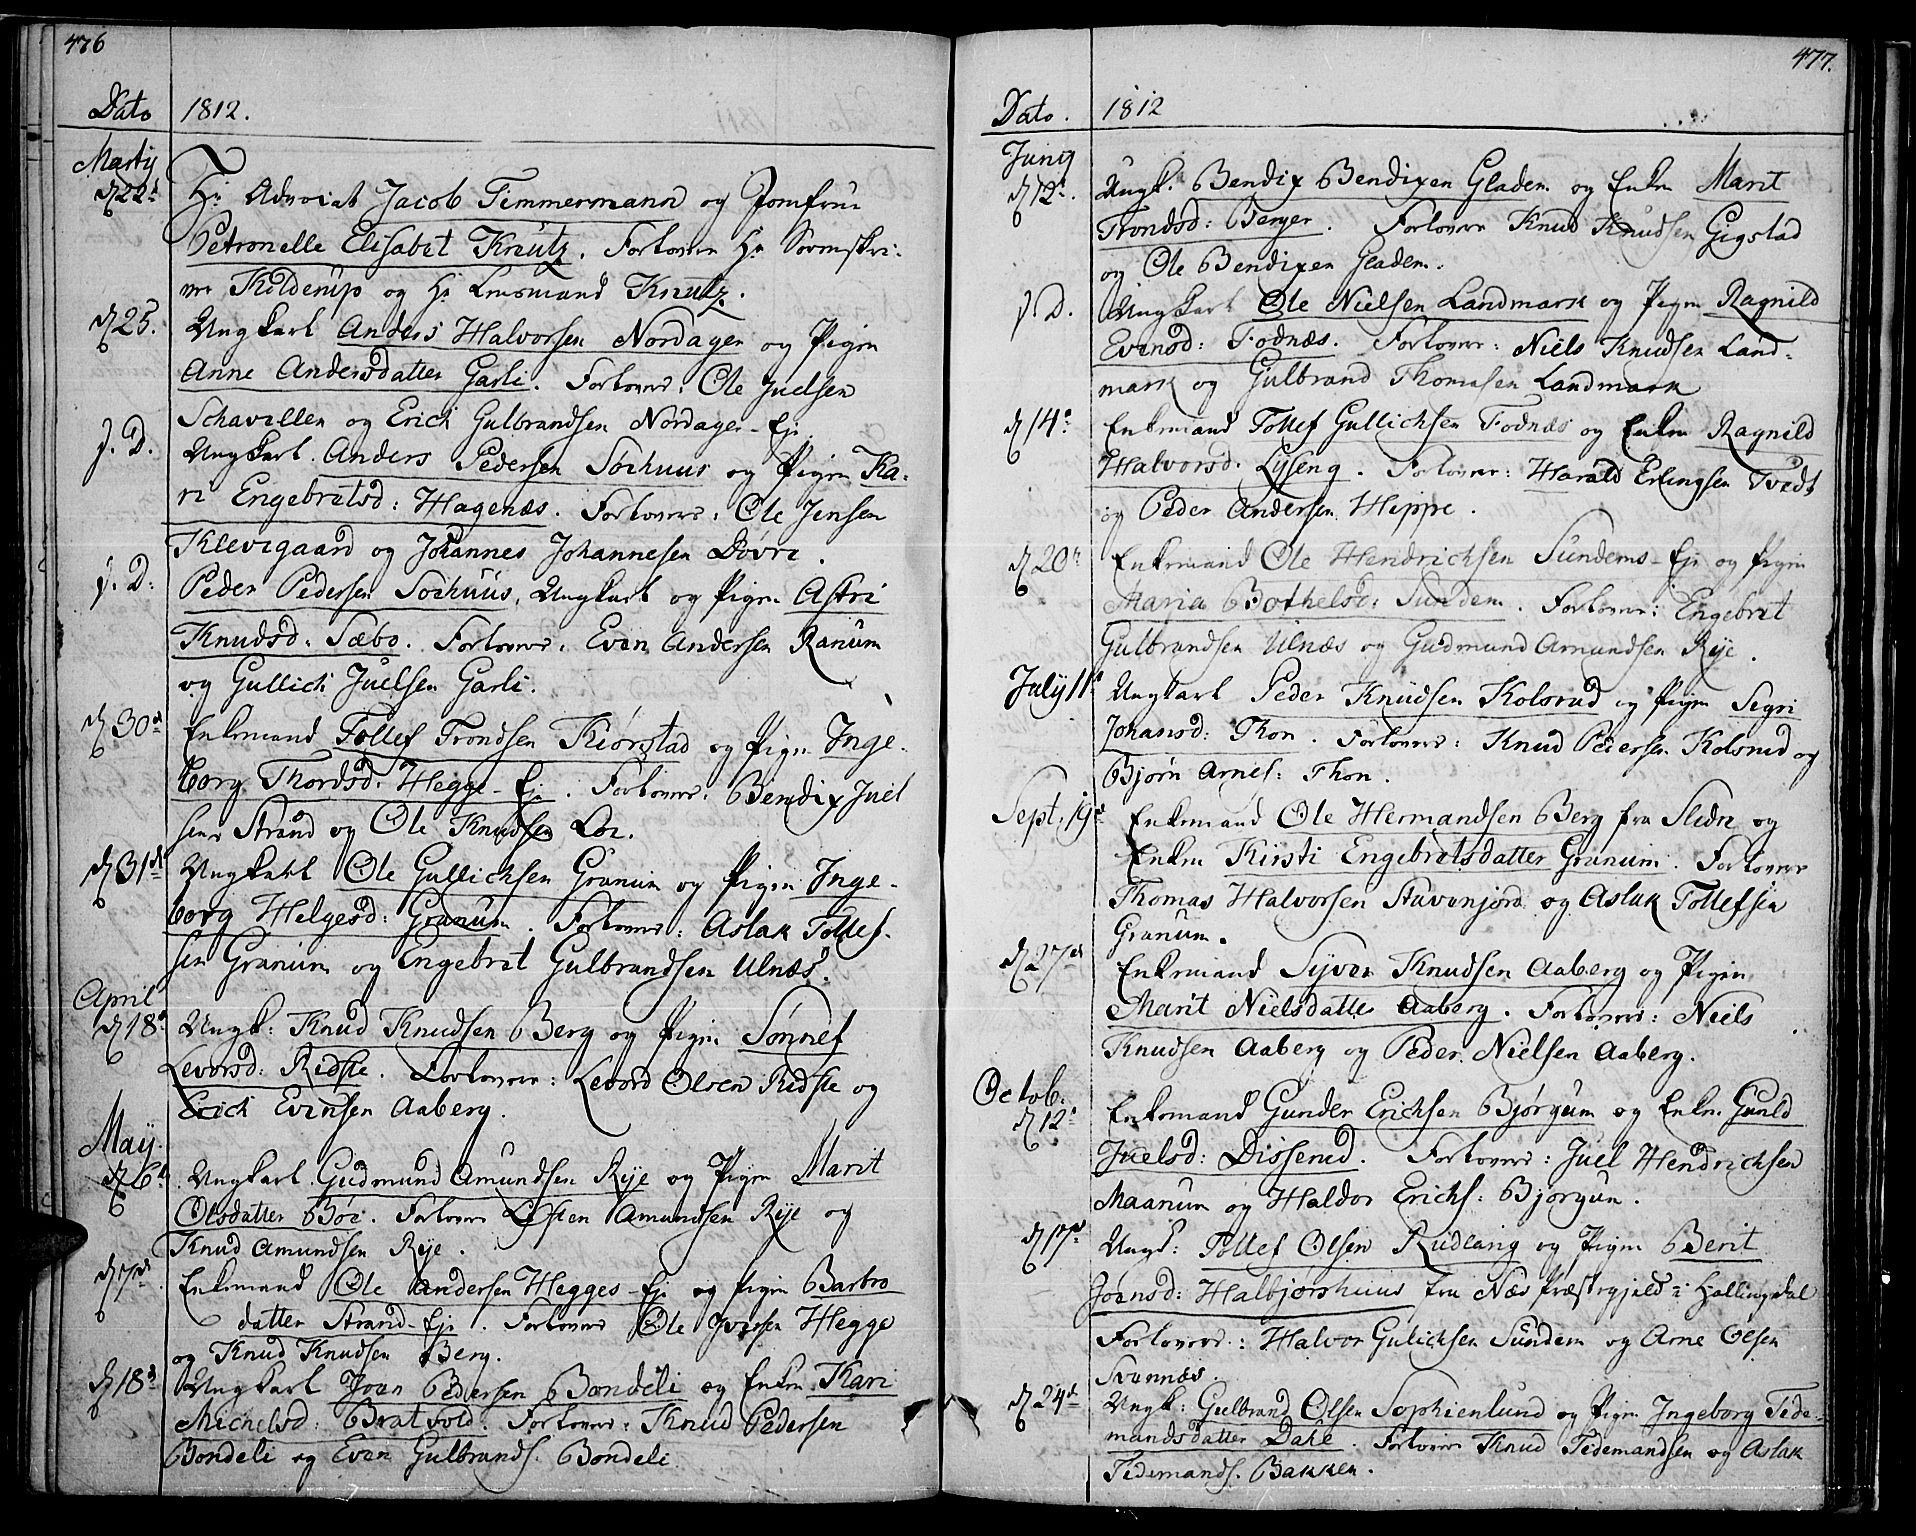 476
Dato 1812.
Martij
d 22de Hr Advocat Jacob Timmermann og Jomfrue
Petronelle Elisabet Knutz. Forlovere Hr Sorenskri-
ver Kolderup og Hr Lensmand Knutz.
d 25. Ungkarl Anders Halvorsen Nordager og Pigen
Anne Andersdatter Garli. Forlovere: Ole Juelsen
Schavellen og Erich Gulbrandsen Nordager-Eje
s. D. Ungkarl. Anders Pedersen Söehuus og Pigen Ka-
ri Engebretsd: Hagenæs. Forlovere: Ole Jensen
Klevegaard og Johannes Johannesen Dövre.
s. D: Peder Pedersen Söehuus, Ungkarl og Pigen Astri
Knudsd: Sæbo. Forlovere: Even Andersen Ranum
og Gullich Juelsen Garli.
d 30te Enkemand Tollef Trondsen Kiörstad og Pigen Inge-
borg Thordsd: Hegge-Eje. Forlovere: Bendix Juel
sen Strand og Ole Knudsen Loe.
d 31te Ungkarl Ole Gullichsen Granum og Pigen Inge-
borg Helgesd: Granum. Forlovere: Aslak Tollef-
sen Granum og Engebret Gulbrandsen Ulnæs.
April
d 18de Ungk: Knud Knudsen Berg og Pigen Sönnef
Levorsd: Ridste. Forlovere: Levord Olsen Ridste og
Erich Evensen Aaberg.
Maij
d 6te Ungkarl Gudmund Amundsen Rÿe og Pigen Marit
Olsdatter Böe. Forlovere Efsten Amundsen Rÿe og
Knud Amundsen Rÿe.
d 7de Enkemand Ole Andersen Hegges-Eje og Pigen Barbro
datter Strand-Eje. Forlovere Ole Iversen Hegge
og Knud Knudsen Berg.
d 18de Ungkarl Joen Pedersen Bondeli og Enken Kari
Michelsd: Bratvold. Forlovere: Knud Pedersen
Bondeli og Even Gulbrands. Bondeli
477.
Dato. 1812
Junij
d 12te. Ungk. Bendix Bendixen Gladem og Enken Marit
Trondsd: Berger. Forlovere Knud Knudsen Gigstad
og Ole Bendixen Gladem.
s. D. Ungkarl Ole Nielsen Landmark og Pigen Ragnild
Evensd: Fodnæs. Forlovere: Niels Knudsen Land-
mark og Gulbrand Thomasen Landmark
d 14de Enkemand Tollef Gullichsen Fodnæs og Enken Ragnild
Halvorsd. Lyseng. Forlovere: Harald Erlingsen Tvedt
og Peder Andersen Hippe.
d 20de Enkemand Ole Hendrichsen Sundems-Eje og Pigen
Maria Bothelsd: Sundem. Forlovere: Engebret
Gulbrandsen Ulnæs og Gudmund Amundsen Rÿe.
Julij 11te Ungkarl Peder Knudsen Kolsrud og Pigen Segri
Johansd: Thon. Forlovere: Knud Pedersen Kolsrud og
Bjørn Arnes: Thon.
Sept. 19de Enkemand Ole Hermandsen Berg fra Slidre og
Enken Kirsti Engebretsdatter Granum. Forlovere
Thomas Halvorsen Stavenjord og Aslak Tollefsen
Granum.
d 27de Enkemand Syver Knudsen Aaberg og Pigen
Marit Nielsdatter Aaberg. Forlovere: Niels
Knudsen Aaberg og Peder Nielsen Aaberg.
Octob:
d 12te Enkemand Gunder Erichsen Bjørgum og Enken Gunild
Juelsd: Disserud. Forlovere: Juel Hendrichsen
Maanum og Haldor Erichs: Bjørgum.
d 17de Ungk: Tollef Olsen Rudlang og Pigen Berit
Joensd: Halbjørshuus fra Næs Præstegjeld i Hallingdal
Forlovere: Halvor Gulichsen Sundem og Arne Olsen
Svennæs.
d 24de Ungk: Gulbrand Olsen Sophienlund og Pigen Ingeborg Tide-
mandsdatter Dahle. Forlovere Knud Tidemandsen og Aslak
Tidemands. Bakken.